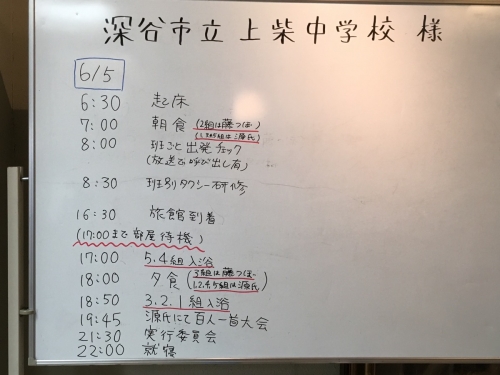 深谷市立上柴中学校 様
6/5
6:30 起床
7:00 朝食 (2組は藤つぼ)
(1.3.4.5組は源氏)
8:00 班ごと出発チェック
(放送で呼び出し有)
8:30 班別タクシー研修
16:30 旅館到着
(17:00まで部屋待機)
17:00 5.4組入浴
18:00 夕食 (3組は藤つぼ
1,2,4,5組は源氏)
18:50 3.2.1組入浴
19:45 源氏にて百人一首大会
21:30 実行委員会
22:00 就寝